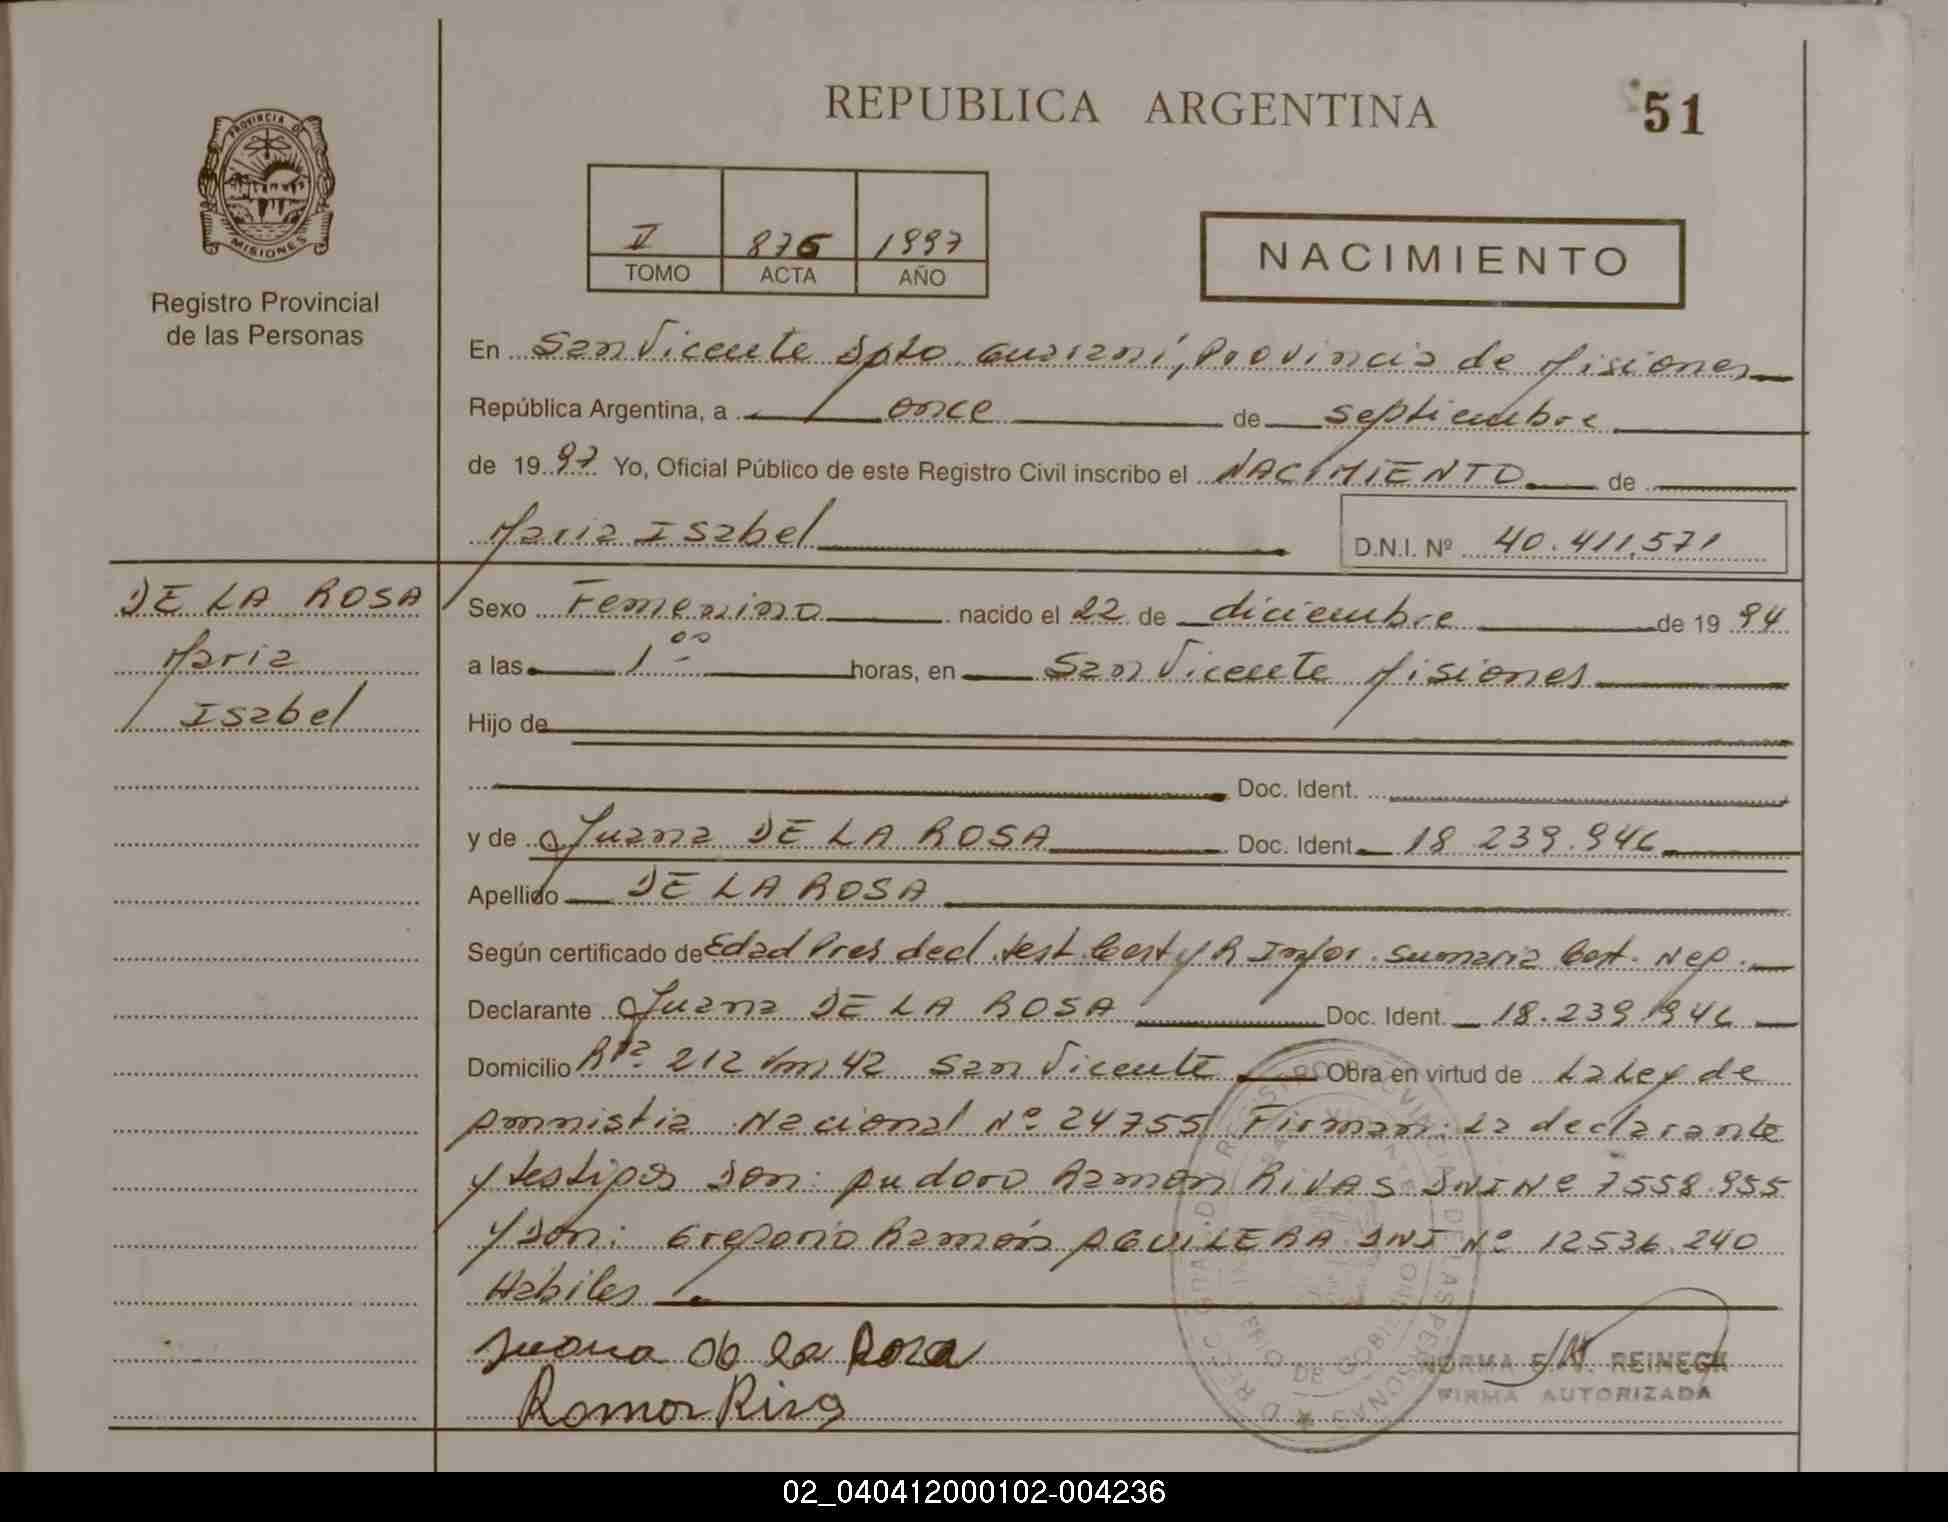 REPUBLICA ARGENTINA
51
PROVINCIA DE
MISIONES
Registro Provincial
de las Personas
II 876 1997
TOMO ACTA AÑO
NACIMIENTO
En San Vicente Dpto. Guaraní, Provincia de Misiones
República Argentina, a once de septiembre
de 1997 Yo, Oficial Público de este Registro Civil inscribo el NACIMIENTO de
Maria Isabel
D.N.I. Nº 40.411.571
DE LA ROSA
Maria
Isabel
Sexo Femenino nacido el 22 de diciembre de 1994
a las 1 00 horas, en San Vicente Misiones
Hijo de
Doc. Ident.
y de Juana DE LA ROSA Doc. Ident. 18 239.946
Apellido DE LA ROSA
Según certificado de Edad Pres decl. test. Cert y R Infor. Sumaria Cert. Neg.
Declarante Juana DE LA ROSA Doc. Ident. 18.239.946
Domicilio Rta. 212 Km 42 San Vicente Obra en virtud de La Ley de
Amnistia Nacional Nº 24755 Firman: La declarante
y testigos Don: Audoro Ramon RIVAS DNI Nº 7558.955
y Don: Gregorio Ramón AGUILERA DNI Nº 12536.240
Habiles
Juana de la Rosa
NORMA REINECK
FIRMA AUTORIZADA
Ramon
02_040412000102-004236